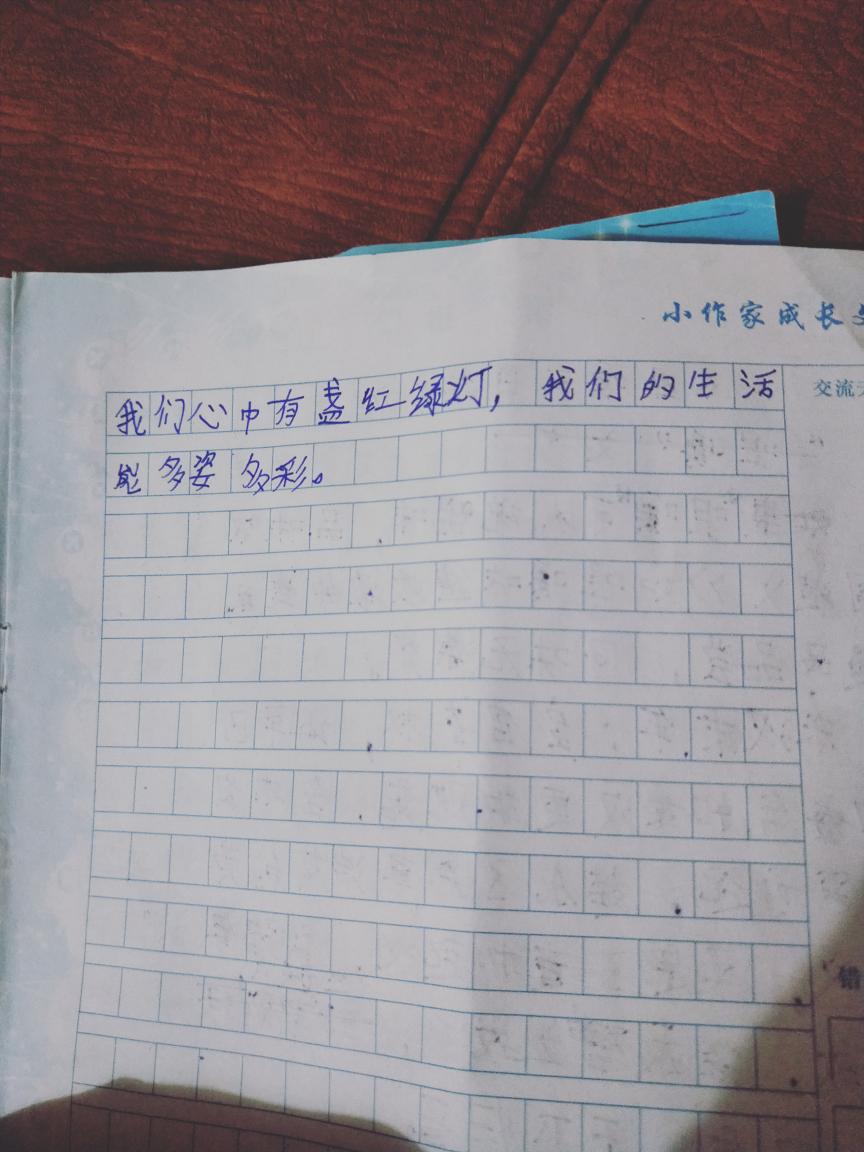 小作家成长
我们心中有盏红绿灯，我们的生活
能多姿多彩。
交流
错